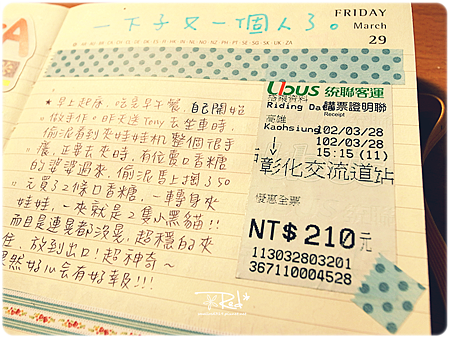 一下子又一個人了。
FRIDAY
March
29
★早上起床，吃早午餐，自己開始
做手作。昨天送Tony去坐車時，
偷泥看到夾娃娃机整個很手
癢，正要去夾時，有位賣口香糖
的婆婆過來，偷泥馬上掏350
元買32條口香糖，一轉身夾
娃娃，一夾就是2隻小黑貓!!
而且是連晃都沒晃，超穩的夾
住，放到出口!超神奇~
果然好心会有好報!!!
Ubus 統聯客運
Riding Date 購票證明聯
Receipt
高雄
Kaohsiung 102/03/28
102/03/28
15:15 (11)
彰化交流道站
優惠全票
NT$210元
113032803201
367110004528